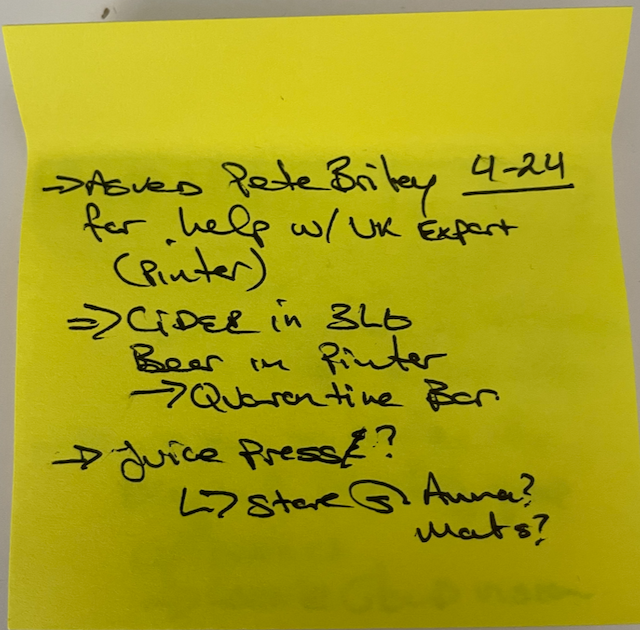 → Asked Pete Briley 4-24
for help w/ UK Export
(Pinter)
⇒ CiDER in BLG
Beer in Pinter
→ Quarantine Bar.
→ Juice Press?
↳ store @ Anna?
Mats?